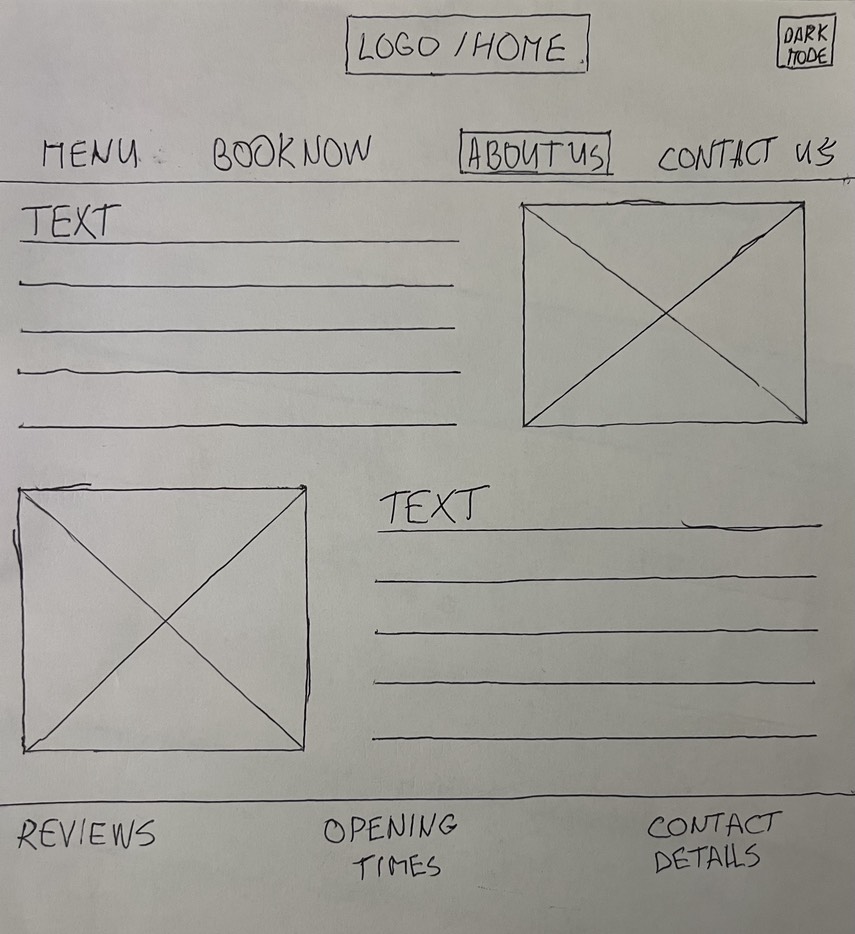 LOGO / HOME
DARK
MODE
MENU BOOK NOW ABOUT US CONTACT US
TEXT
TEXT
REVIEWS OPENING TIMES CONTACT DETAILS